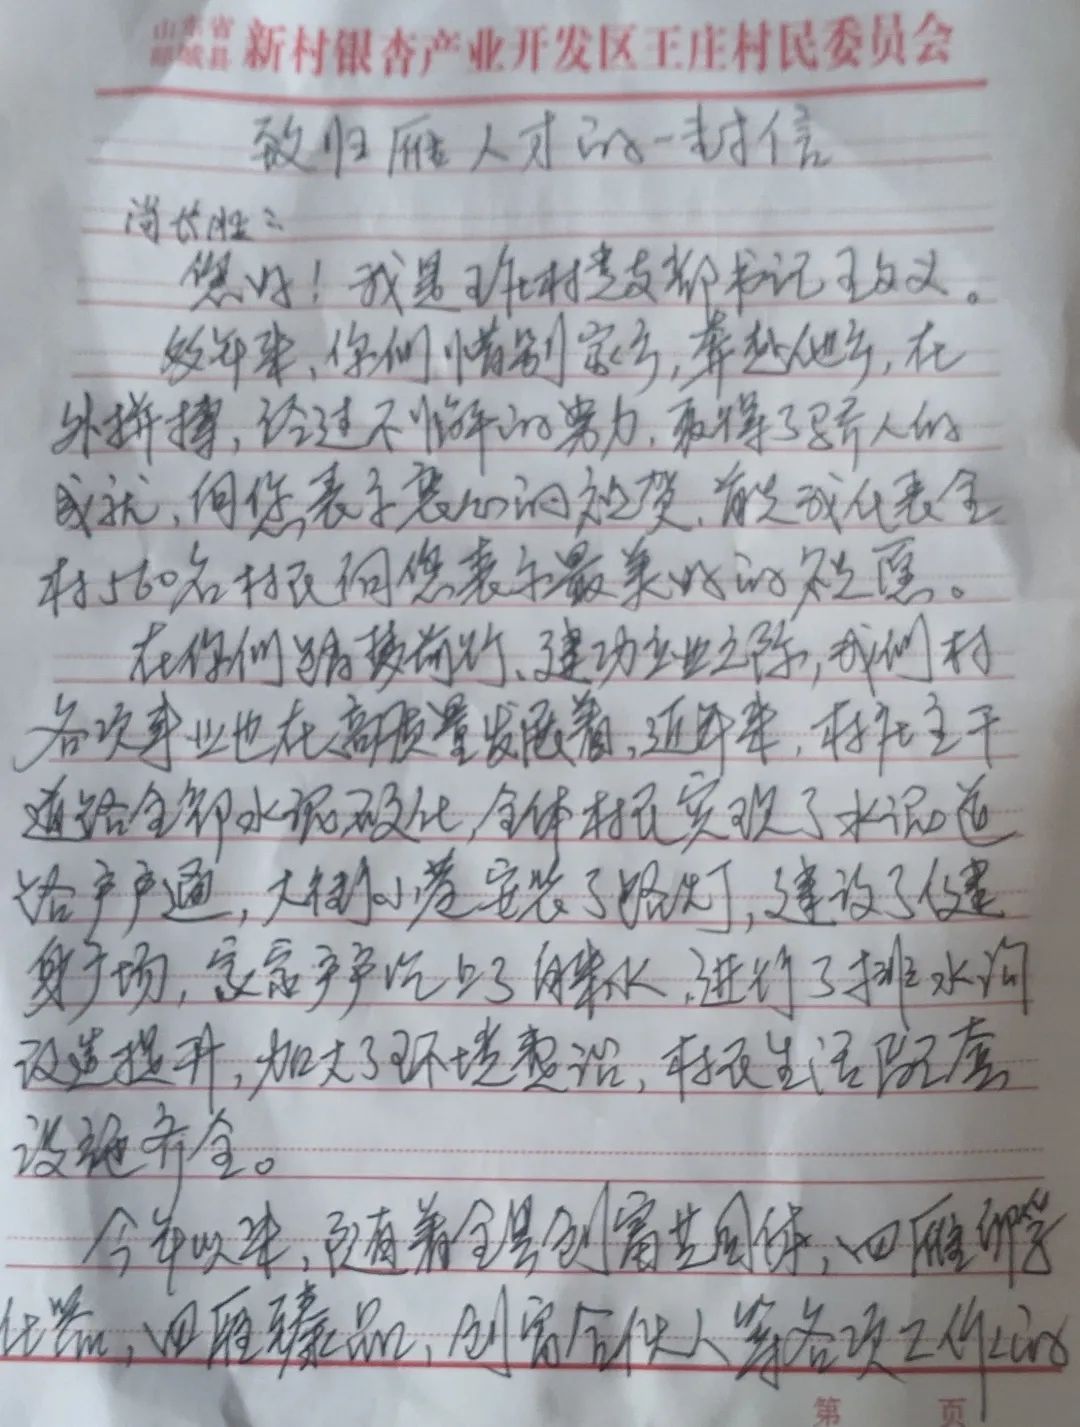 山东省
郯城县 新村银杏产业开发区王庄村民委员会
致归雁人才的一封信
尚长胜：
您好！我是王庄村党支部书记王文义。
数年来，你们惜别家乡，奔赴他乡，在
外拼搏，经过不懈的努力，取得了骄人的
成就，向您表示衷心的祝贺，首先我代表全
村560名村民向您表示最美好的祝愿。
在你们砥砺前行、建功立业之际，我们村
各项事业也在高质量发展着，近年来，村庄主干
道路全部水泥硬化，全体村民实现了水泥道
路户户通，大街小巷安装了路灯，建设了健
身广场，家家户户吃上了自来水，进行了排水沟
改造提升，加大了环境整治，村民生活配套
设施齐全。
今年以来，随着全县创富共同体，归雁
归雁臻品，创富合伙人等各项工作的
第 页